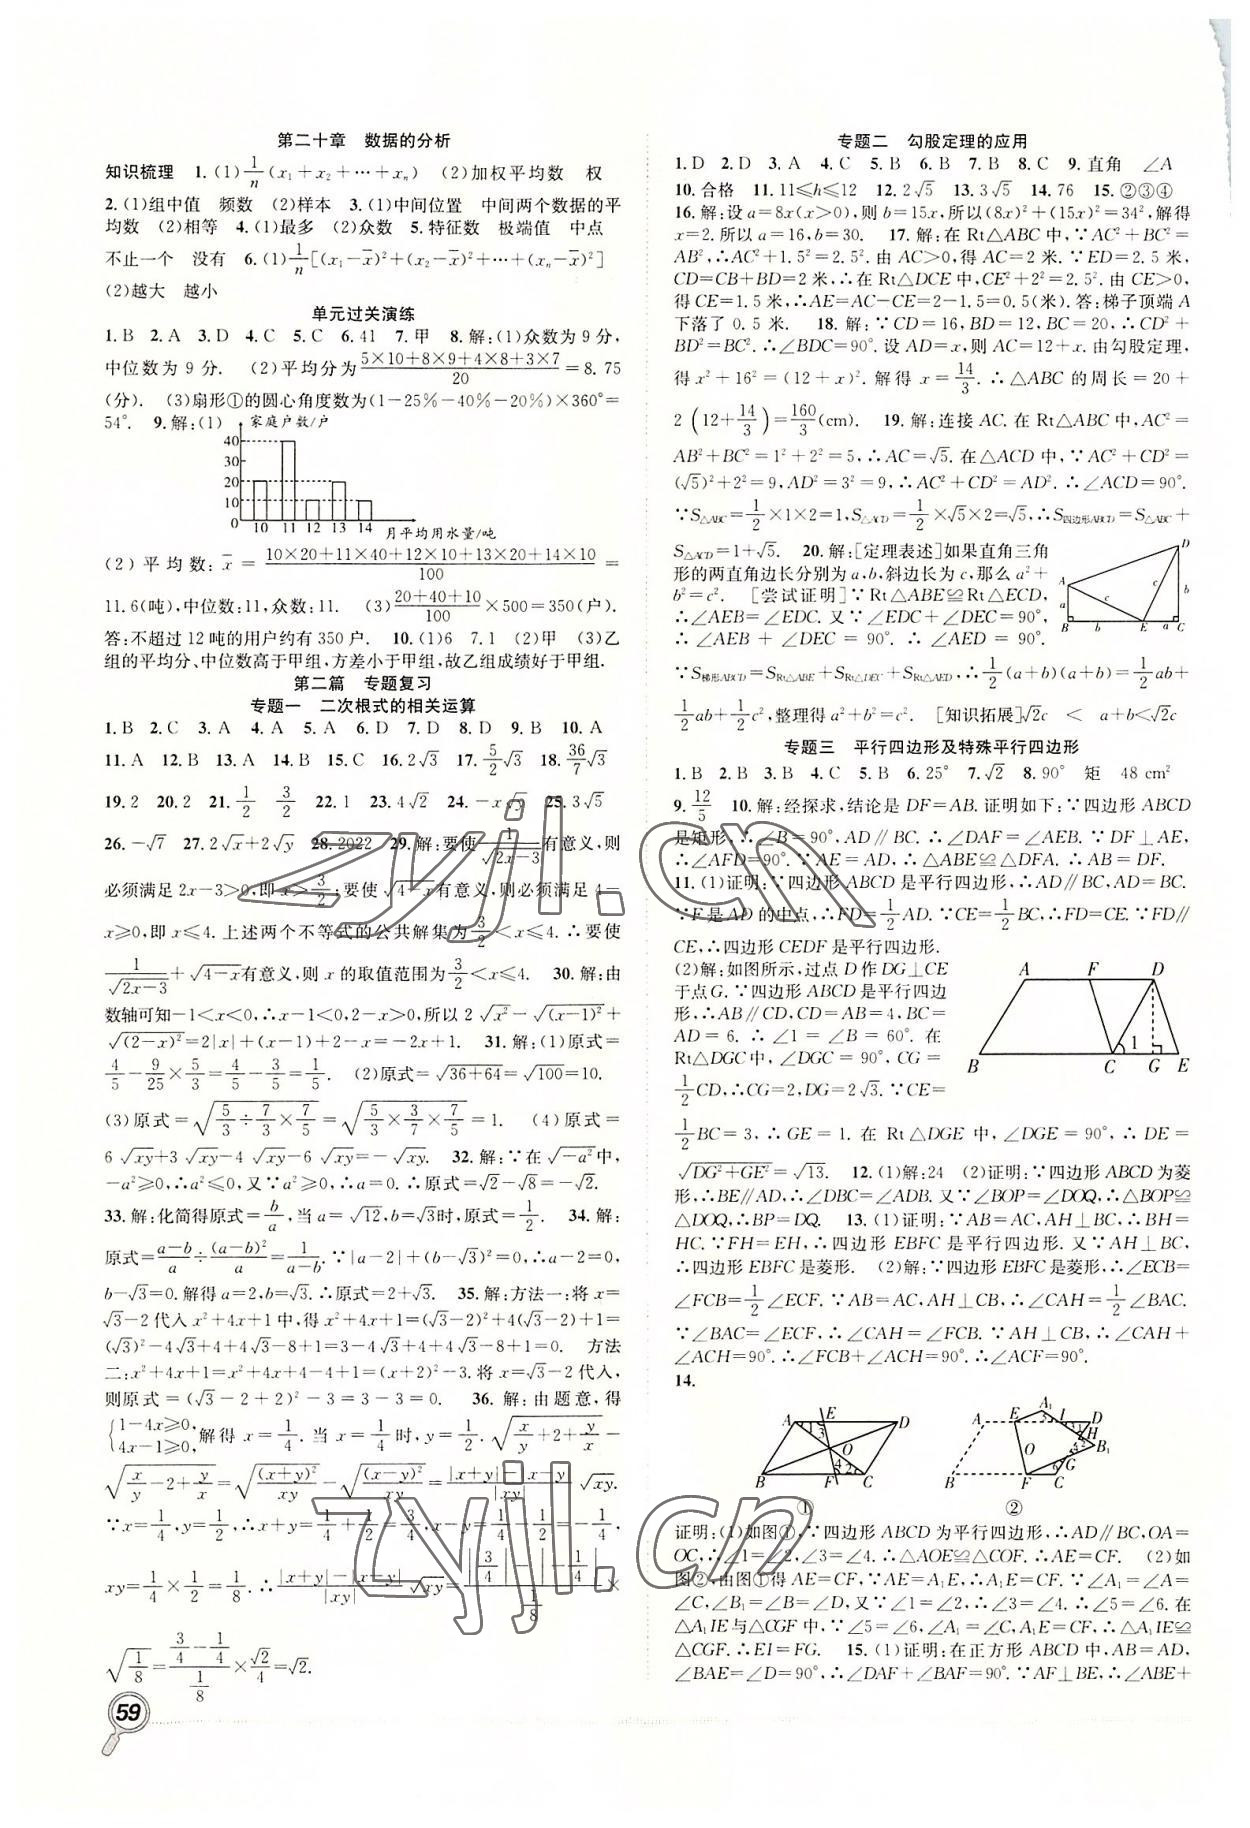 第二十章　数据的分析
知识梳理　1.(1)1/n(x₁+x₂+…+xₙ)　(2)加权平均数　权
2.(1)组中值　频数　(2)样本　3.(1)中间位置　中间两个数据的平
均数　(2)相等　4.(1)最多　(2)众数　5.特征数　极端值　中点
不止一个　没有　6.(1)1/n[(x₁-x̄)²+(x₂-x̄)²+…+(xₙ-x̄)²]
(2)越大　越小
单元过关演练
1.B　2.A　3.D　4.C　5.C　6.41　7.甲　8.解:(1)众数为9分,
中位数为9分.　(2)平均分为(5×10+8×9+4×8+3×7)/20=8.75
(分).　(3)扇形①的圆心角度数为(1-25%-40%-20%)×360°=
54°.　9.解:(1)
家庭户数/户
40
30
20
10
0
10 11 12 13 14
月平均用水量/吨
(2)平均数:x̄=(10×20+11×40+12×10+13×20+14×10)/100=
11.6(吨),中位数:11,众数:11.　(3)(20+40+10)/100×500=350(户).
答:不超过12吨的用户约有350户.　10.(1)6　7.1　(2)甲　(3)乙
组的平均分、中位数高于甲组,方差小于甲组,故乙组成绩好于甲组.
第二篇　专题复习
专题一　二次根式的相关运算
1.B　2.C　3.A　4.A　5.A　6.D　7.D　8.D　9.B　10.A
11.A　12.B　13.A　14.B　15.C　16.2√3　17.5/2√3　18.36/7√3
19.2　20.2　21.1/2　3/2　22.1　23.4√2　24.-x√y　25.3√5
26.-√7　27.2√x+2√y　28.2022　29.解:要使1/√(2x-3)有意义,则
必须满足2x-3>0,即x>3/2;要使√(4-x)有意义,则必须满足4-
x≥0,即x≤4.上述两个不等式的公共解集为3/2<x≤4.∴要使
1/√(2x-3)+√(4-x)有意义,则x的取值范围为3/2<x≤4.　30.解:由
数轴可知-1<x<0,∴x-1<0,2-x>0,所以2√x²-√(x-1)²+
√(2-x)²=2|x|+(x-1)+2-x=-2x+1.　31.解:(1)原式=
4/5-9/25×5/3=4/5-3/5=1/5.　(2)原式=√(36+64)=√100=10.
(3)原式=√(5/3÷7/3×7/5)=√(5/3×3/7×7/5)=1.　(4)原式=
6√xy+3√xy-4√xy-6√xy=-√xy.　32.解:∵在√(-a²)中,
-a²≥0,∴a²≤0,又∵a²≥0,∴a=0.　原式=√2-√8=-√2.
33.解:化简得原式=b/a,当a=√12,b=√3时,原式=1/2.　34.解:
原式=(a-b)/a÷(a-b)²/a=1/(a-b).∵|a-2|+(b-√3)²=0,∴a-2=0,
b-√3=0.解得a=2,b=√3.∴原式=2+√3.　35.解:方法一:将x=
√3-2代入x²+4x+1中,得x²+4x+1=(√3-2)²+4(√3-2)+1=
(√3)²-4√3+4+4√3-8+1=3-4√3+4+4√3-8+1=0.　方法
二:x²+4x+1=x²+4x+4-4+1=(x+2)²-3.将x=√3-2代入,
则原式=(√3-2+2)²-3=3-3=0.　36.解:由题意,得
{1-4x≥0, 4x-1≥0,解得x=1/4.当x=1/4时,y=1/2.√(x/y+2+y/x)-
√(x/y-2+y/x)=√((x+y)²/xy)-√((x-y)²/xy)=(|x+y|-|x-y|)/|xy|√xy.
∵x=1/4,y=1/2,∴x+y=1/4+1/2=3/4,x-y=1/4-1/2=-1/4,
xy=1/4×1/2=1/8.∴(|x+y|-|x-y|)/|xy|√xy=(|3/4|-|-1/4|)/|1/8|×
√(1/8)=(3/4-1/4)/(1/8)×√2/4=√2.
59
专题二　勾股定理的应用
1.D　2.D　3.A　4.C　5.B　6.B　7.B　8.C　9.直角　∠A
10.合格　11.11≤h≤12　12.2√5　13.3√5　14.76　15.②③④
16.解:设a=8x(x>0),则b=15x,所以(8x)²+(15x)²=34²,解得
x=2.所以a=16,b=30.　17.解:在Rt△ABC中,∵AC²+BC²=
AB²,∴AC²+1.5²=2.5².由AC>0,得AC=2米.∵ED=2.5米,
CD=CB+BD=2米,∴在Rt△DCE中,CE²+2²=2.5².由CE>0,
得CE=1.5米,∴AE=AC-CE=2-1.5=0.5(米).答:梯子顶端A
下落了0.5米.　18.解:∵CD=16,BD=12,BC=20,∴CD²+
BD²=BC².∴∠BDC=90°.设AD=x,则AC=12+x.由勾股定理,
得x²+16²=(12+x)².解得x=14/3.∴△ABC的周长=20+
2(12+14/3)=160/3(cm).　19.解:连接AC.在Rt△ABC中,AC²=
AB²+BC²=1²+2²=5,∴AC=√5.在△ACD中,∵AC²+CD²=
(√5)²+2²=9,AD²=3²=9,∴AC²+CD²=AD².∴∠ACD=90°.
∵S△ABC=1/2×1×2=1,S△ACD=1/2×√5×2=√5,∴S四边形ABCD=S△ABC+
S△ACD=1+√5.　20.解:[定理表述]如果直角三角
形的两直角边长分别为a,b,斜边长为c,那么a²+
b²=c².　[尝试证明]∵Rt△ABE≌Rt△ECD,
∴∠AEB=∠EDC.又∵∠EDC+∠DEC=90°,
∴∠AEB+∠DEC=90°.∴∠AED=90°.
A
B
C
D
E
a
b
c
c
b
a
∵S梯形ABCD=SRt△ABE+SRt△DEC+SRt△AED,∴1/2(a+b)(a+b)=
1/2ab+1/2ab+1/2c²,整理得a²+b²=c².　[知识拓展]√2c　<　a+b<√2c
专题三　平行四边形及特殊平行四边形
1.B　2.B　3.B　4.C　5.B　6.25°　7.√2　8.90°　矩　48 cm²
9.12/5　10.解:经探求,结论是DF=AB.证明如下:∵四边形ABCD
是矩形,∴∠B=90°,AD∥BC.∴∠DAF=∠AEB.∵DF⊥AE,
∴∠AFD=90°.∵AE=AD,∴△ABE≌△DFA.∴AB=DF.
11.(1)证明:∵四边形ABCD是平行四边形,∴AD∥BC,AD=BC.
∵F是AD的中点,∴FD=1/2AD.∵CE=1/2BC,∴FD=CE.∵FD∥
CE,∴四边形CEDF是平行四边形.
(2)解:如图所示,过点D作DG⊥CE
于点G.∵四边形ABCD是平行四边
形,∴AB∥CD,CD=AB=4,BC=
AD=6.∴∠1=∠B=60°.在
Rt△DGC中,∠DGC=90°,CG=
1/2CD,∴CG=2,DG=2√3.∵CE=
A F D
B C G E
1
1/2BC=3,∴GE=1.在Rt△DGE中,∠DGE=90°,∴DE=
√(DG²+GE²)=√13.　12.(1)解:24　(2)证明:∵四边形ABCD为菱
形,∴BE∥AD,∴∠DBC=∠ADB.又∵∠BOP=∠DOQ,∴△BOP≌
△DOQ,∴BP=DQ.　13.(1)证明:∵AB=AC,AH⊥BC,∴BH=
HC.∵FH=EH,∴四边形EBFC是平行四边形.又∵AH⊥BC,
∴四边形EBFC是菱形.　(2)解:∵四边形EBFC是菱形,∴∠ECB=
∠FCB=1/2∠ECF.∵AB=AC,AH⊥CB,∴∠CAH=1/2∠BAC.
∵∠BAC=∠ECF,∴∠CAH=∠FCB.∵AH⊥CB,∴∠CAH+
∠ACH=90°.∴∠FCB+∠ACH=90°.∴∠ACF=90°.
14.
A E D
1 3
O
4 2
B F C
①
A E A₁ I D
H
B₁
O
G
B F C
②
证明:(1)如图①,∵四边形ABCD为平行四边形,∴AD∥BC,OA=
OC,∴∠1=∠2,∠3=∠4.∴△AOE≌△COF.∴AE=CF.　(2)如
图②,由图①得AE=CF,∵AE=A₁E,∴A₁E=CF.∵∠A₁=∠A=
∠C,∠B₁=∠B=∠D,又∵∠1=∠2,∴∠3=∠4.∴∠5=∠6.在
△A₁IE与△CGF中,∵∠5=∠6,∠A₁=∠C,A₁E=CF,∴△A₁IE≌
△CGF.∴EI=FG.　15.(1)证明:在正方形ABCD中,AB=AD,
∠BAE=∠D=90°,∴∠DAF+∠BAF=90°.∵AF⊥BE,∴∠ABE+
zyjl.cn
zyjl.cn